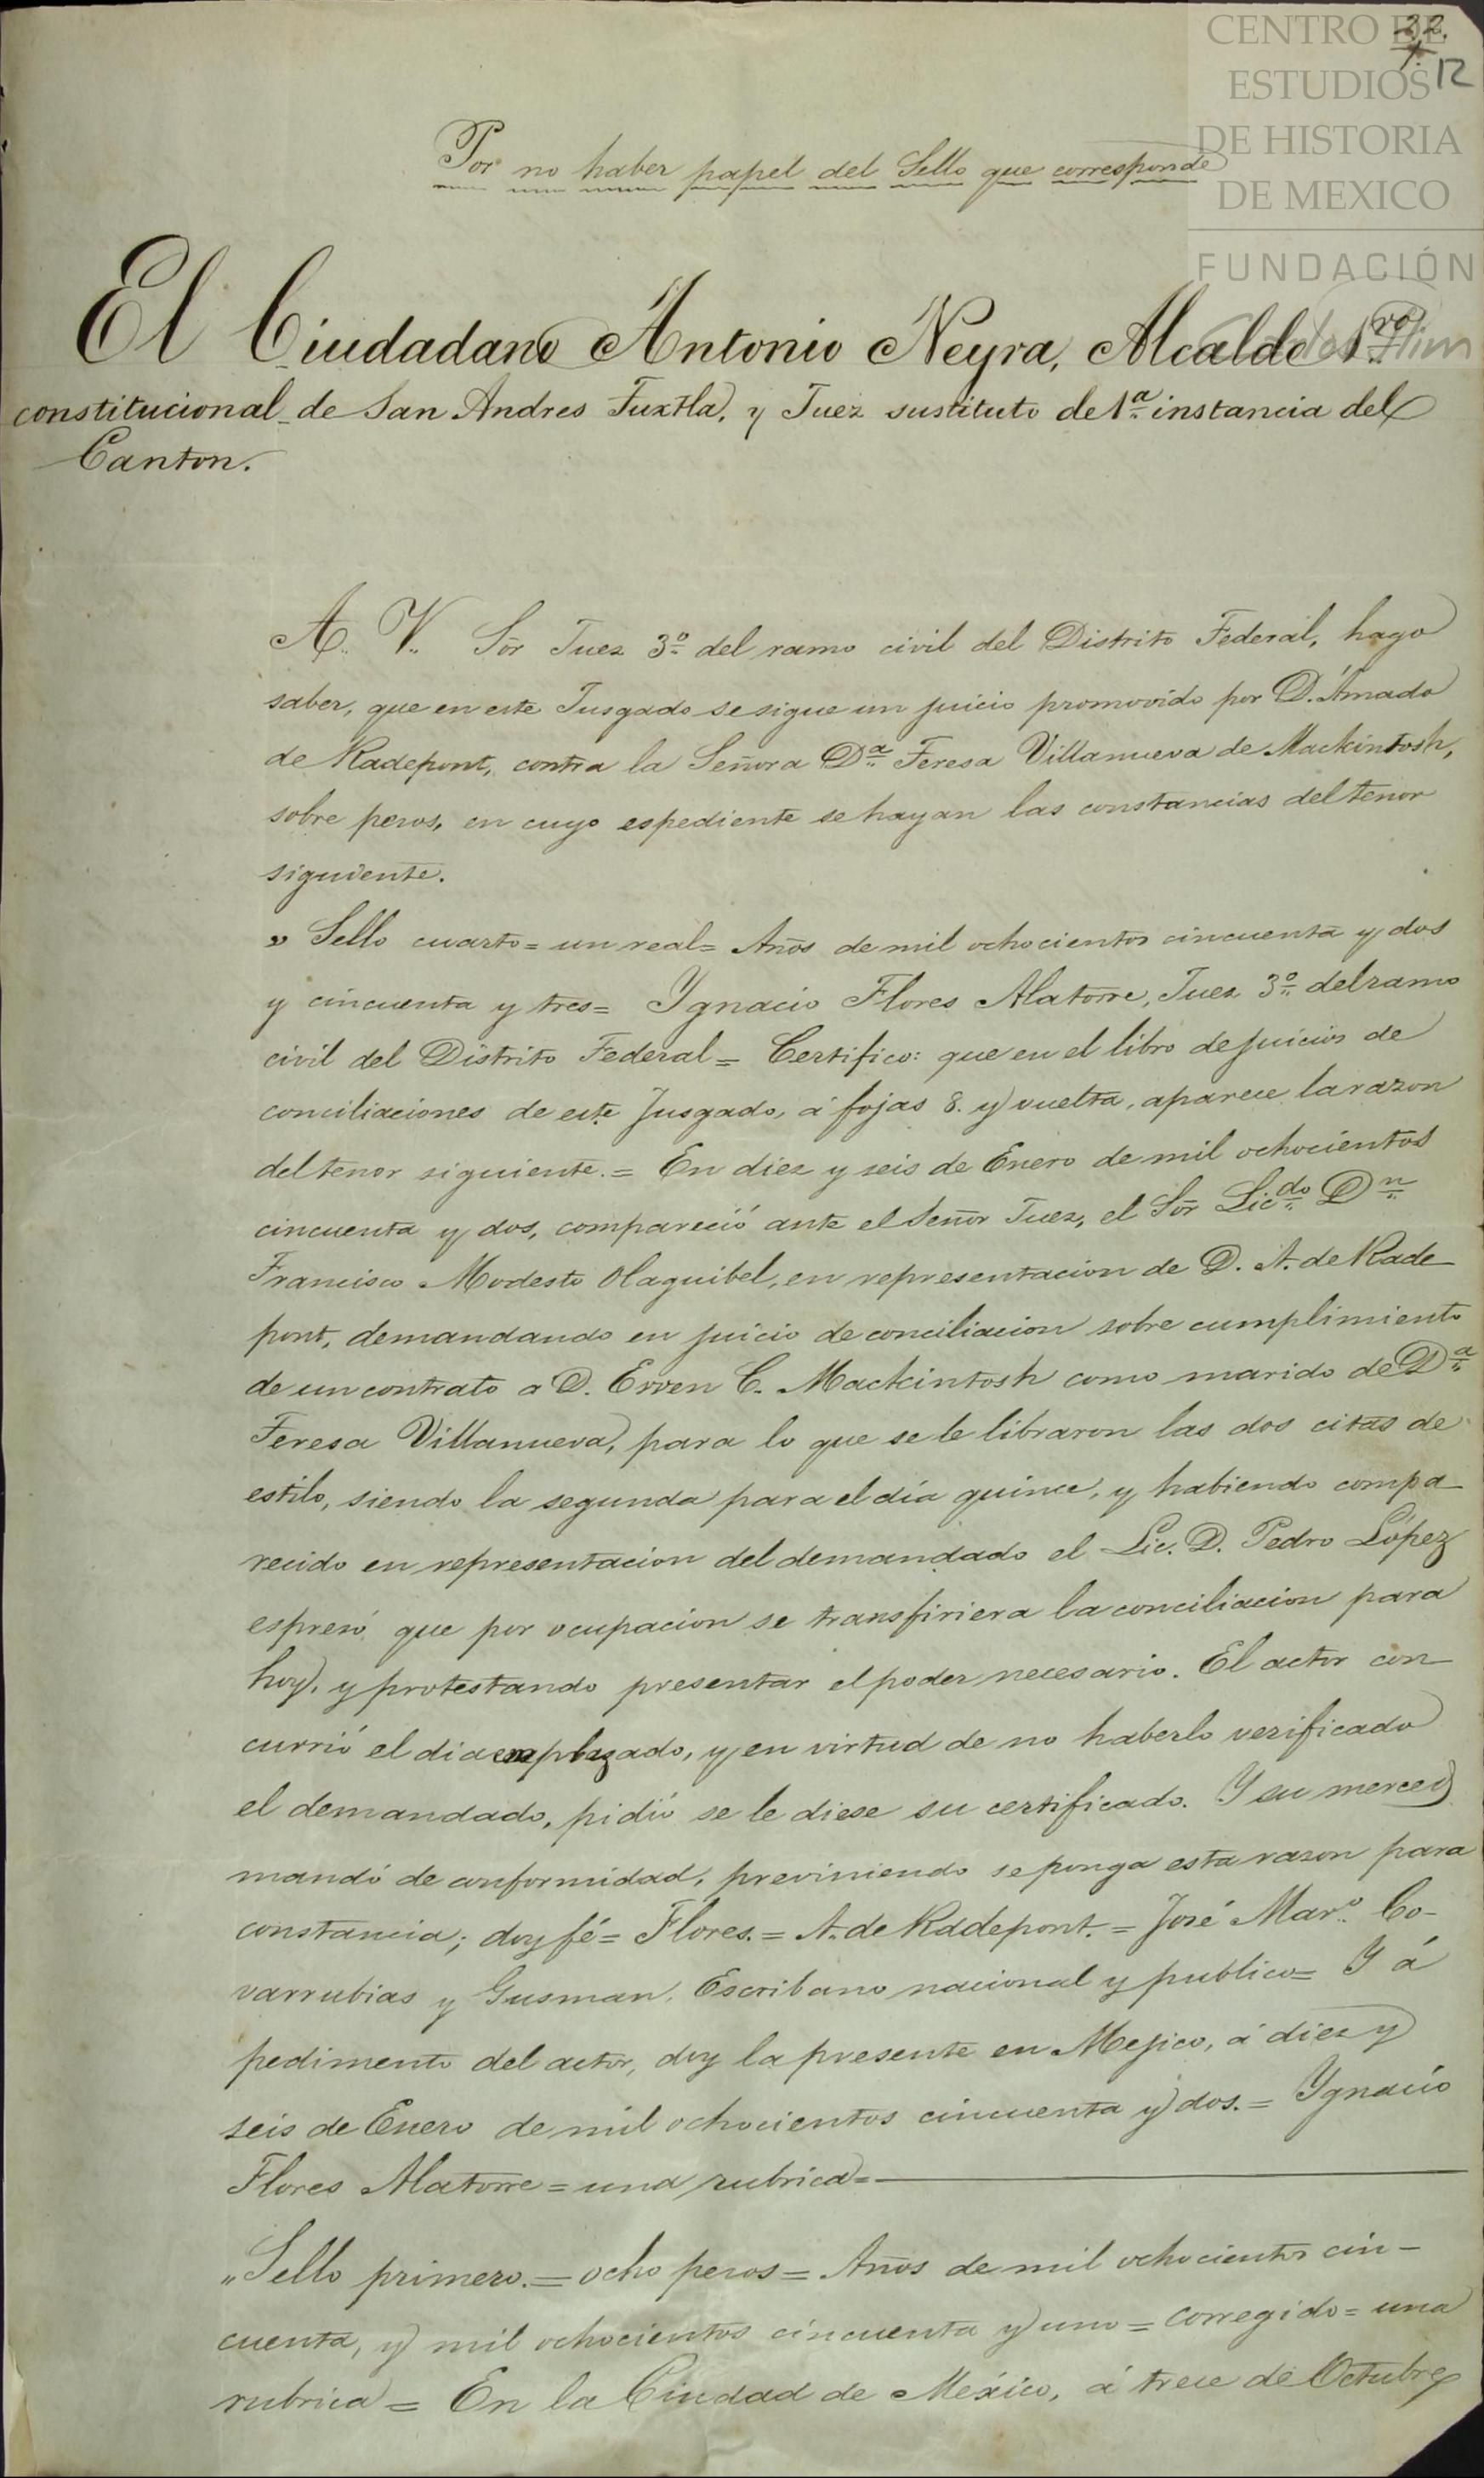 CENTRO DE
ESTUDIOS
DE HISTORIA
DE MEXICO
FUNDACIÓN
22.
12
Por no haber papel del Sello que corresponde
El Ciudadano Antonio Neyra, Alcalde 1.ro
constitucional de San Andres Tuxtla, y Juez sustituto de 1.a instancia del
Canton.
A. V. Sõr Juez 3.o del ramo civil del Distrito Federal, hago
saber, que en este Jusgado se sigue un juicio promovido por D. Amado
de Radepont, contra la Señora D.a Teresa Villanueva de Mackintosh,
sobre pesos, en cuyo espediente se hayan las constancias del tenor
siguiente.
" Sello cuarto = un real = Años de mil ochocientos cincuenta y dos
y cincuenta y tres = Ygnacio Flores Alatorre, Juez 3.o del ramo
civil del Distrito Federal = Certifico: que en el libro de juicios de
conciliaciones de este Jusgado, á fojas 8. y vuelta, aparece la razon
del tenor siguiente. = En diez y seis de Enero de mil ochocientos
cincuenta y dos, compareció ante el Señor Juez, el Sõr Lic.do D.n
Francisco Modesto Olaguibel, en representacion de D. A. de Rade
pont, demandando en juicio de conciliacion sobre cumplimiento
de un contrato a D. Ewen C. Mackintosh como marido de D.a
Teresa Villanueva, para lo que se le libraron las dos citas de
estilo, siendo la segunda para el día quince, y habiendo compa
recido en representacion del demandado el Lic. D. Pedro López
espresó que por ocupacion se transfiriera la conciliacion para
hoy, y protestando presentar el poder necesario. El actor con
currió el dia emplazado, y en virtud de no haberlo verificado
el demandado, pidió se le diese su certificado. Y su merced
mandó de conformidad, previniendo se ponga esta razon para
constancia; doy fé = Flores. = A. de Radepont. = José Mar.o Co-
varrubias y Gusman, Escribano nacional y publico = Y á
pedimento del actor, doy la presente en Mejico, á diez y
seis de Enero de mil ochocientos cincuenta y dos. = Ygnacio
Flores Alatorre = una rubrica =
" Sello primero. = ocho pesos = Años de mil ochocientos cin-
cuenta, y mil ochocientos cincuenta y uno = corregido = una
rubrica = En la Ciudad de México, á trece de Octubre